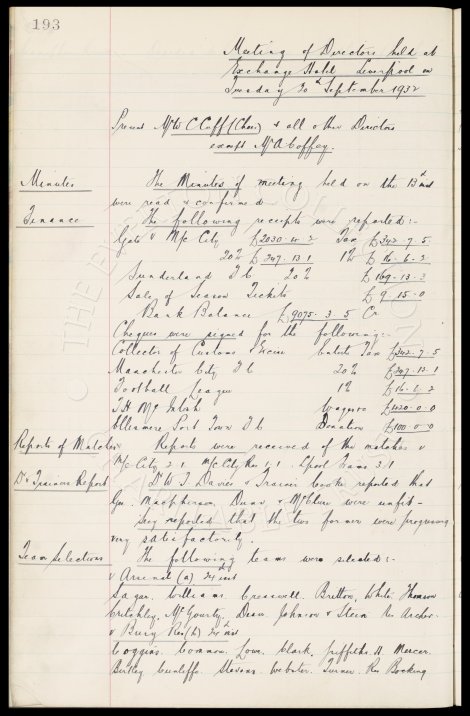 193
Meeting of Directors held at
Exchange Hotel Liverpool on
Tuesday 20th September 1932
Present Mr W C Cuff (Chair) & all other Directors
except Mr A Coffey.
Minutes
The Minutes of meeting held on the 13th inst
were read & confirmed
Finance
The following receipts were reported:-
Gate v M/c City £2030-4-2 Tax £342-7-5
20% £247-13-1 1% £16-6-2
Sunderland F C 20% £169-13-3
Sale of Season Tickets £9-15-0
Bank Balance £9075-3-5 Cr
Cheques were signed for the following:-
Collector of Customs & Excise Entertt Tax £342-7-5
Manchester City F C 20% £247-13-1
Football League 1% £16-6-2
T H McIntosh Wages £420-0-0
Ellesmere Port Town F C Donation £100-0-0
Reports of Matches
Reports were received of the matches v
M/c City 2-1 M/c City Res 4-1 Lpool Trams 3-1
Dr & Trainers Report
Dr W J Davies & Trainer Cooke reported that
Gee Macpherson Dunn & McClure were unfit-
They reported that the two former were progressing
very satisfactorily.
Team Selections
The following teams were selected:-
v Arsenal (a) 24th inst
Sagar. Williams. Cresswell. Britton, White Thomson
Critchley. McGourty. Dean. Johnson & Stein Res Archer.
v Bury Res (h) 24th inst
Coggins. Common. Lowe. Clark. Griffiths. H. Mercer.
Birtley Cunliffe. Stevens. Webster. Turner. Res Bocking